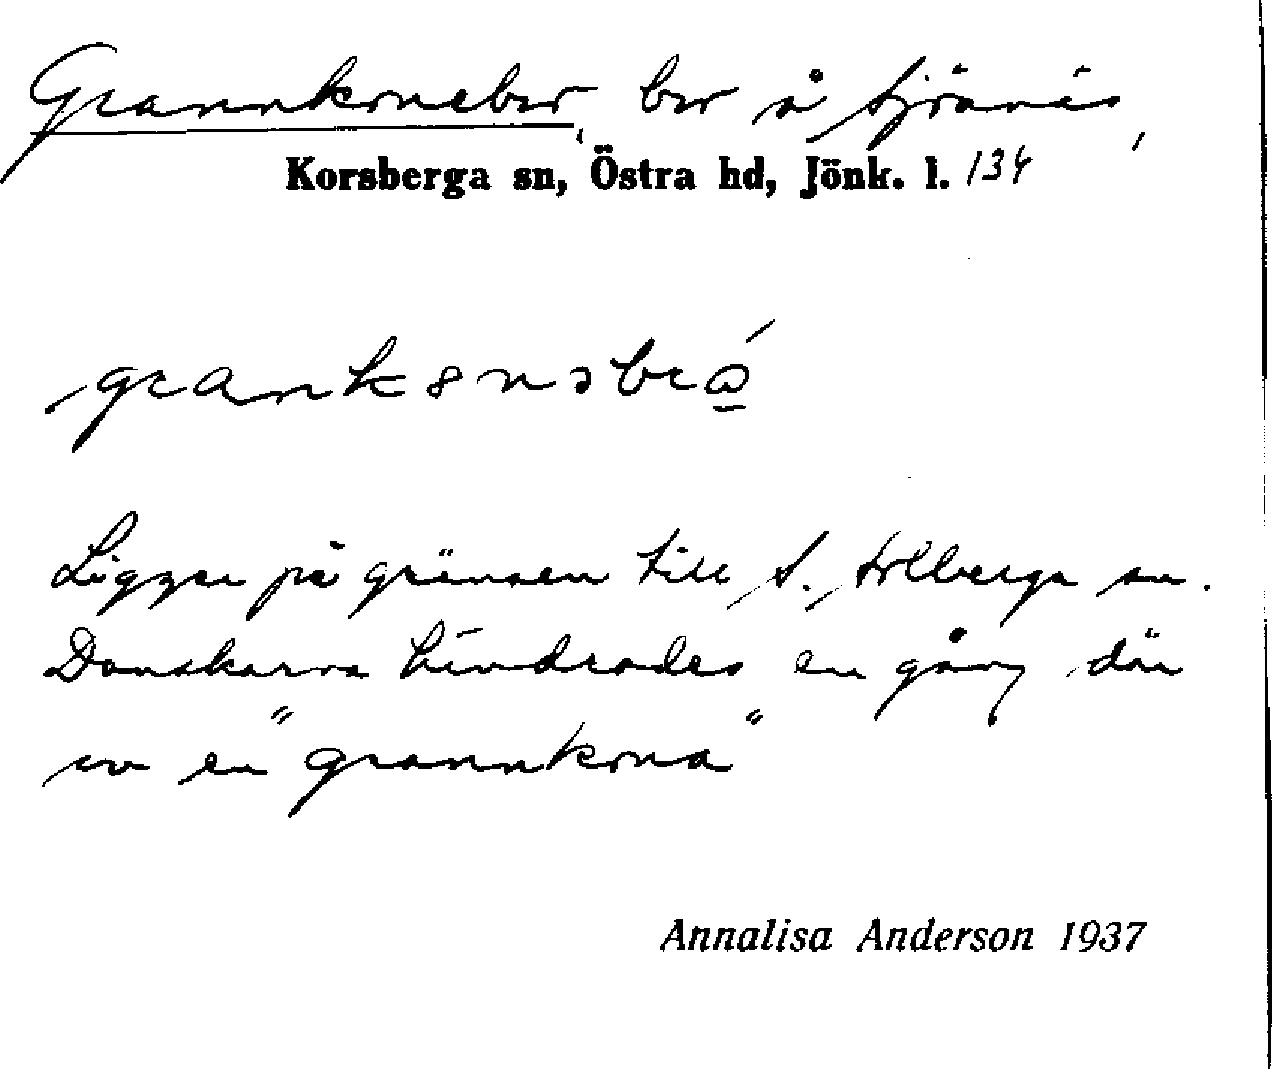 Grannkonebro, bro å Stjärnäs,
Korsberga sn, Östra hd, Jönk. l. 134
Ligger på gränsen till S. Solberga sn.
Danskarna hindrades en gång där
av en "grannkona"
Annalisa Anderson 1937